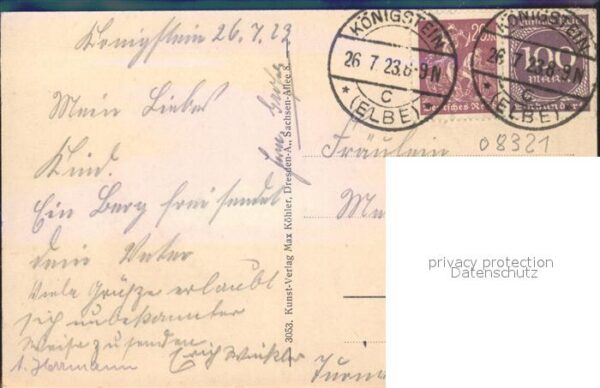 Königstein 26.7.23
Mein Liebes
Kind.
Ein Berg frei sendet
dein Vater
Viele Grüße erlaubt
sich unbekannter
Weise zu senden
Erich Winkler
A. Herrmann
3053. Kunst-Verlag Max Köhler, Dresden-A., Sachsen-Allee 8.
KÖNIGSTEIN
26 7.23.6-9N
* C
(ELBE)
KÖNIGSTEIN
26 7.23.6-9N
* C
(ELBE)
Deutsches Reich
100
MARK
08321
Fräulein
privacy protection
Datenschutz